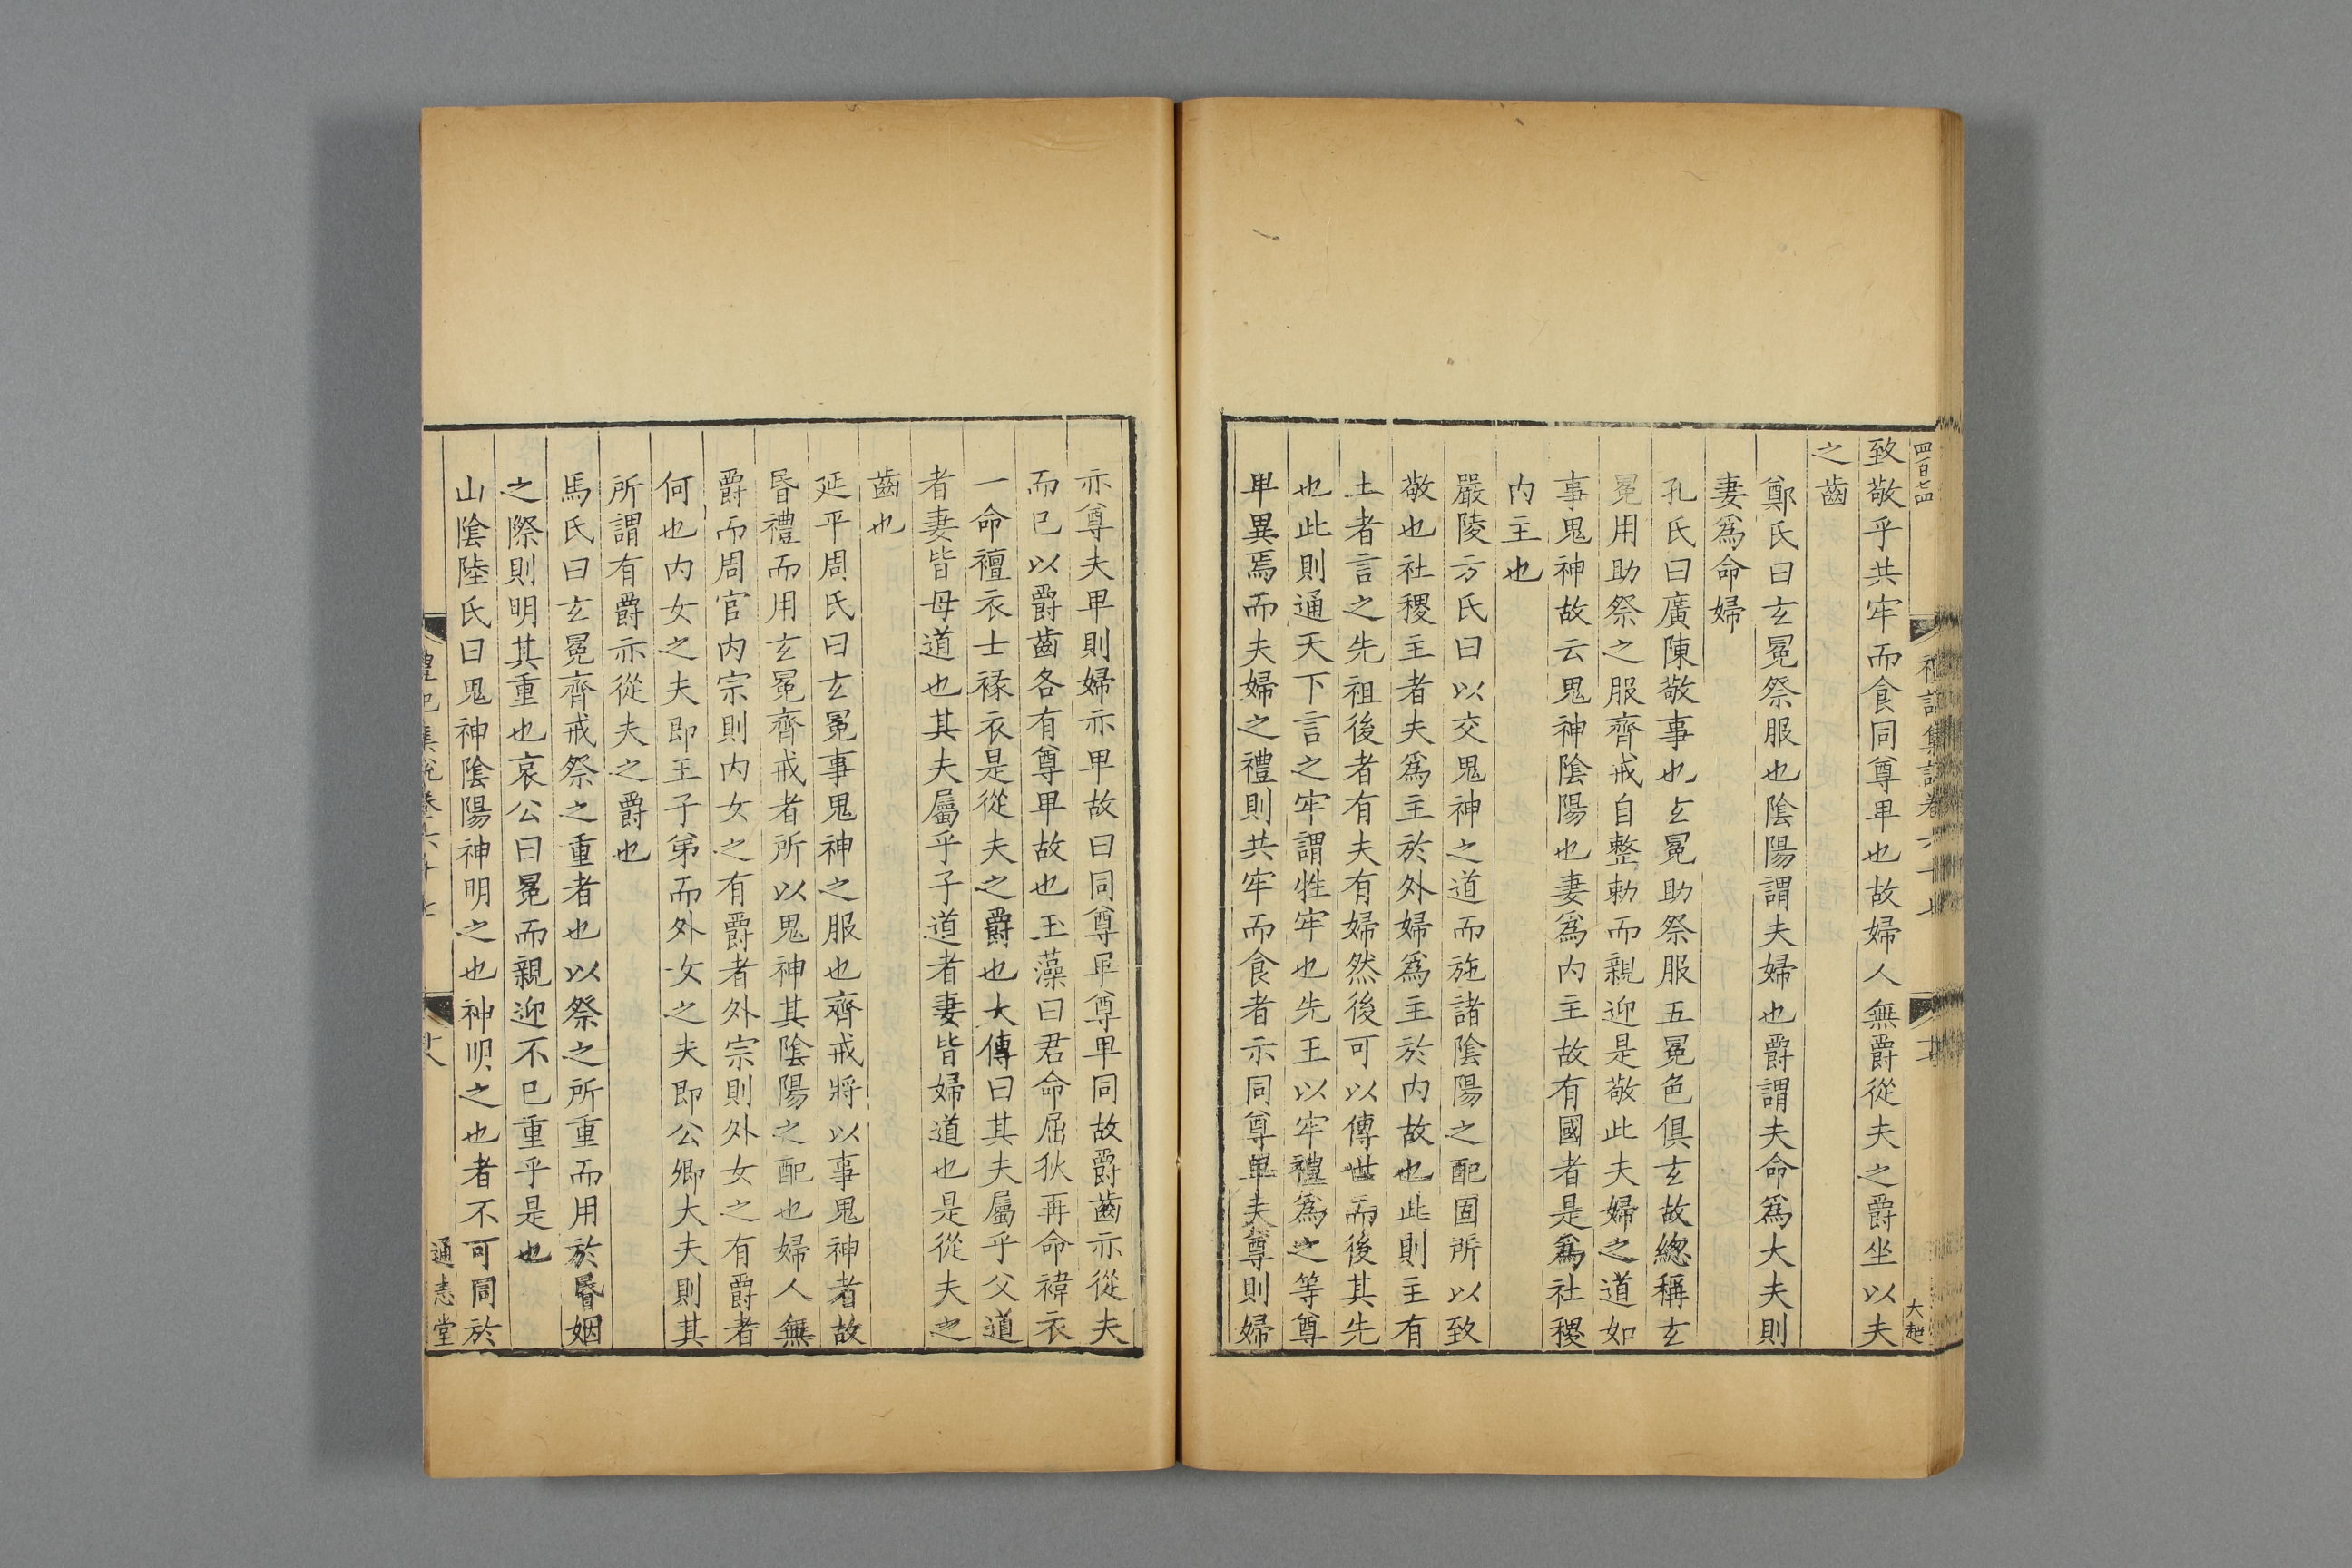 致敬乎共牢而食同尊卑也故婦人無爵從夫之爵坐以夫
之齒
鄭氏曰玄冕祭服也陰陽謂夫婦也爵謂夫命爲大夫則
妻爲命婦
孔氏曰廣陳敬事也玄冕助祭服五冕色俱玄故總稱玄
冕用助祭之服齊戒自整勅而親迎是敬此夫婦之道如
事鬼神故云鬼神陰陽也妻爲內主故有國者是爲社稷
内主也
嚴陵方氏曰以交鬼神之道而施諸陰陽之配固所以致
敬也社稷主者夫爲主於外婦爲主於内故也此則主有
土者言之先祖後者有夫有婦然後可以傳世而後其先
也此則通天下言之牢謂牲牢也先王以牢禮爲之等尊
卑異焉而夫婦之禮則共牢而食者示同尊卑夫尊則婦
亦尊夫卑則婦亦卑故曰同尊卑尊卑同故爵齒亦從夫
而已以爵齒各有尊卑故也玉藻曰君命屈狄再命褘衣
一命襢衣士褖衣是從夫之爵也大傳曰其夫屬乎父道
者妻皆母道也其夫屬乎子道者妻皆婦道也是從夫之
齒也
延平周氏曰玄冕事鬼神之服也齊戒將以事鬼神者故
昬禮而用玄冕齊戒者所以鬼神其陰陽之配也婦人無
爵而周官内宗則内女之有爵者外宗則外女之有爵者
何也内女之夫即王子弟而外女之夫即公卿大夫則其
所謂有爵亦從夫之爵也
馬氏曰玄冕齊戒祭之重者也以祭之所重而用於昬姻
之際則明其重也哀公曰冕而親迎不已重乎是也
山陰陸氏曰鬼神陰陽神明之也神明之也者不可同於
禮記集說卷六十七
通志堂